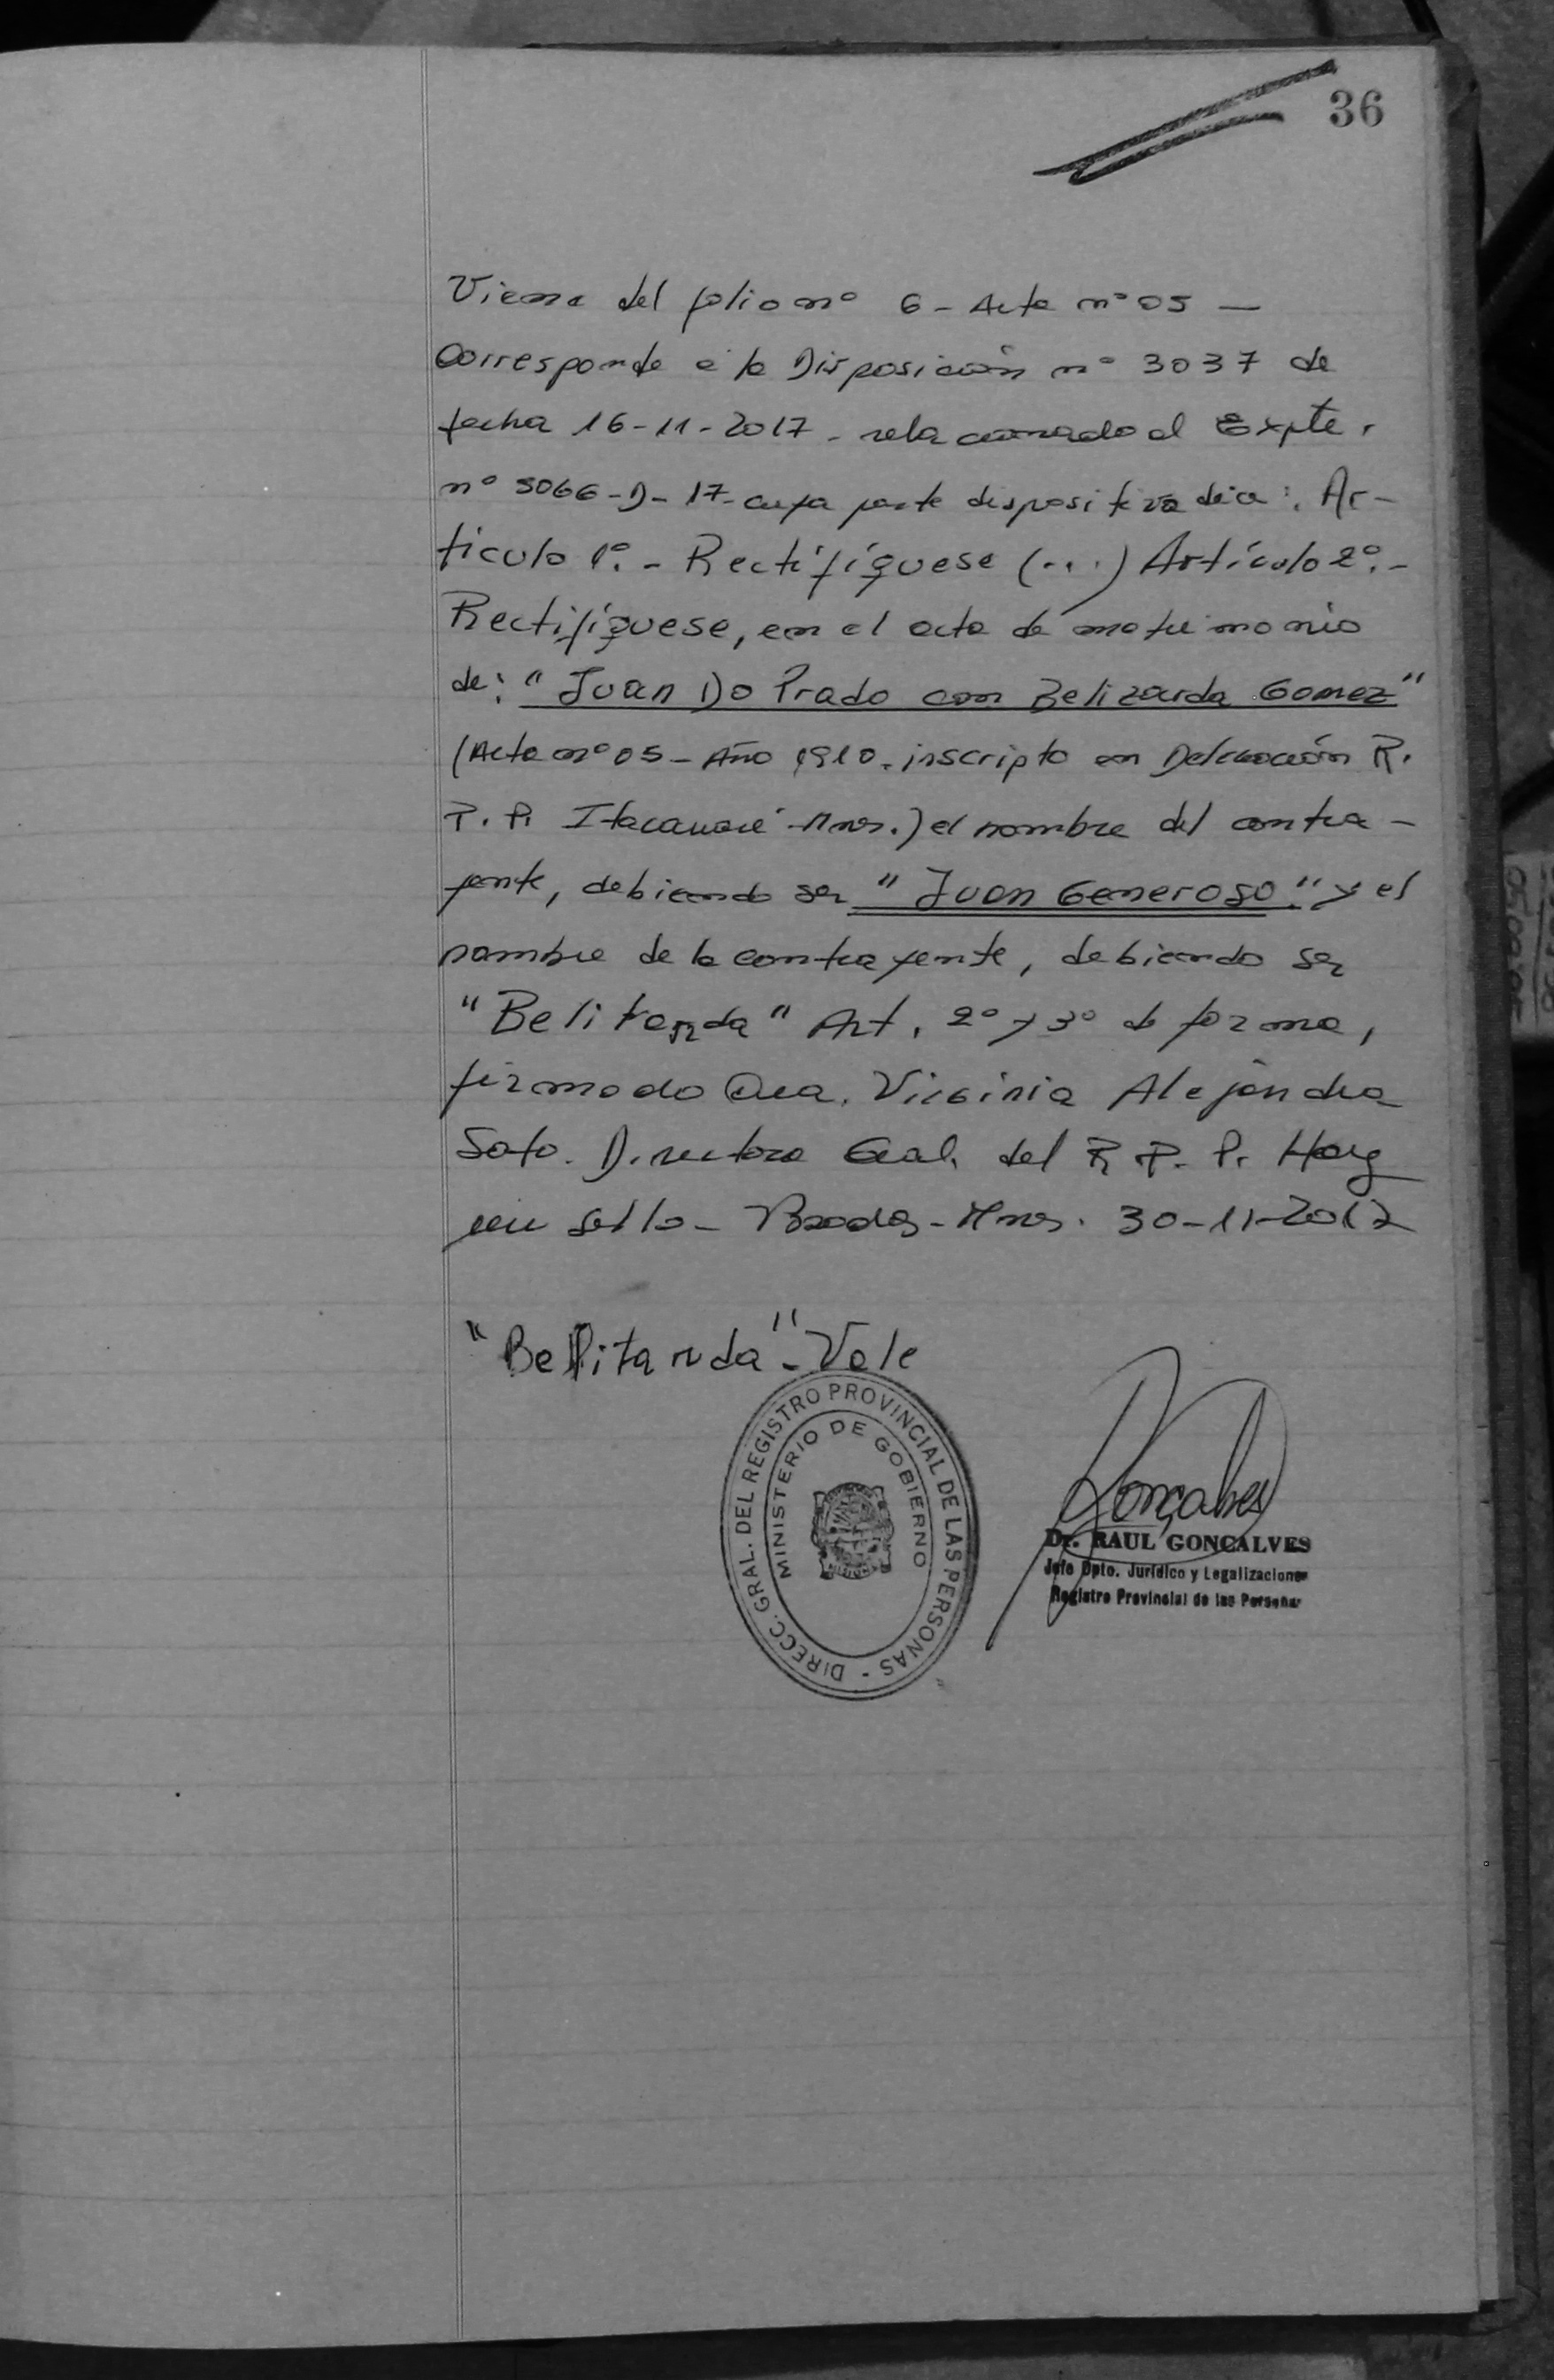 36
Viene del folio nº 6 - Acta nº 05 —
Corresponde a la Disposición nº 3037 de
fecha 16-11-2017 - relacionado al Expte.
nº 5066-D-17- cuya parte dispositiva dice: Ar-
tículo 1º.- Rectifíquese (...) Artículo 2º.-
Rectifíquese, en el acta de matrimonio
de: "Juan Do Prado con Belizarda Gomez"
(Acta nº 05 - Año 1910. inscripto en Delegación R.
P. P. Itacaruaré - Mnes.) el nombre del contra-
yente, debiendo ser "Juan Generoso" y el
nombre de la contrayente, debiendo ser
"Belitarda" Art. 2º y 3º de forma,
firmado Dra. Virginia Alejandra
Soto. Directora Gral. del R. P. P. Hay
un sello - Posadas - Mnes. 30-11-2017
"Bellitarda" - Vale
DIRECC. GRAL. DEL REGISTRO PROVINCIAL DE LAS PERSONAS -
MINISTERIO DE GOBIERNO
Gonçalves
Dr. RAUL GONCALVES
Jefe Dpto. Jurídico y Legalizaciones
Registro Provincial de las Personas